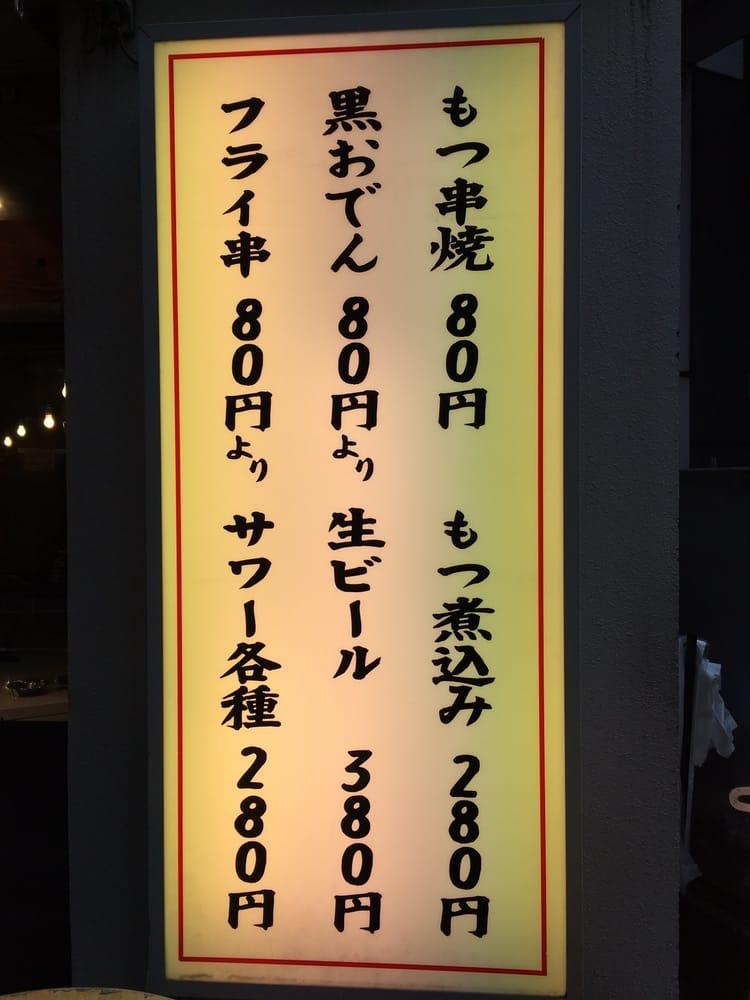 もつ串焼 80円 もつ煮込み 280円
黒おでん 80円より 生ビール 380円
フライ串 80円より サワー各種 280円